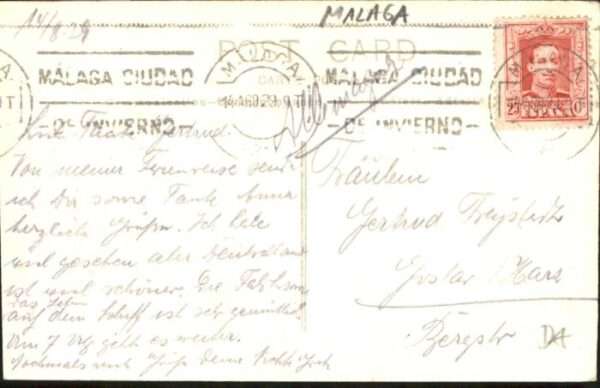 14/8.29
MALAGA
POST CARD
MÁLAGA CIUDAD
DE INVIERNO
MÁLAGA CIUDAD
DE INVIERNO
14 AGO 29
Liebe Tante Gertrud!
Von meiner Ferienreise sende
ich Dir sowie Tante Anna
herzliche Grüße. Ich habe
viel gesehen aber Deutschland
ist viel schöner. Die Fahrt
das Leben
auf dem Schiff ist sehr gemütlich
Um 7 Uhr geht es weiter.
Nochmals viele Grüße Deine
Fräulein
Gertrud
Goslar Harz
Bergstr
DA